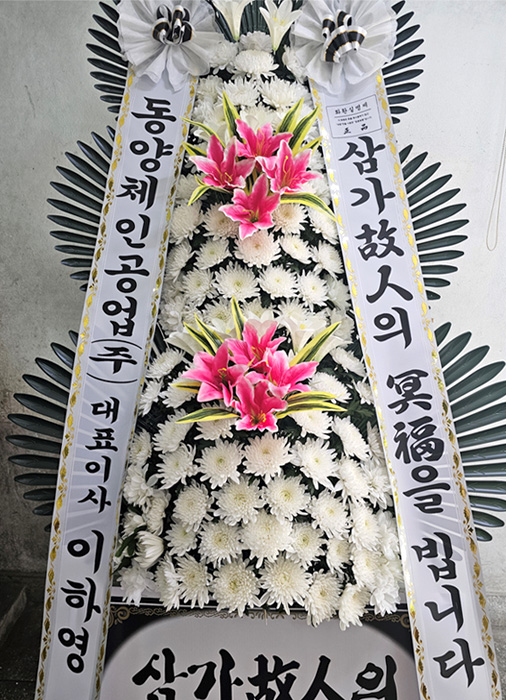 동양체인공업(주) 대표이사 이하영
화환실명제
正品
삼가 故人의 冥福을 빕니다
삼가 故人의